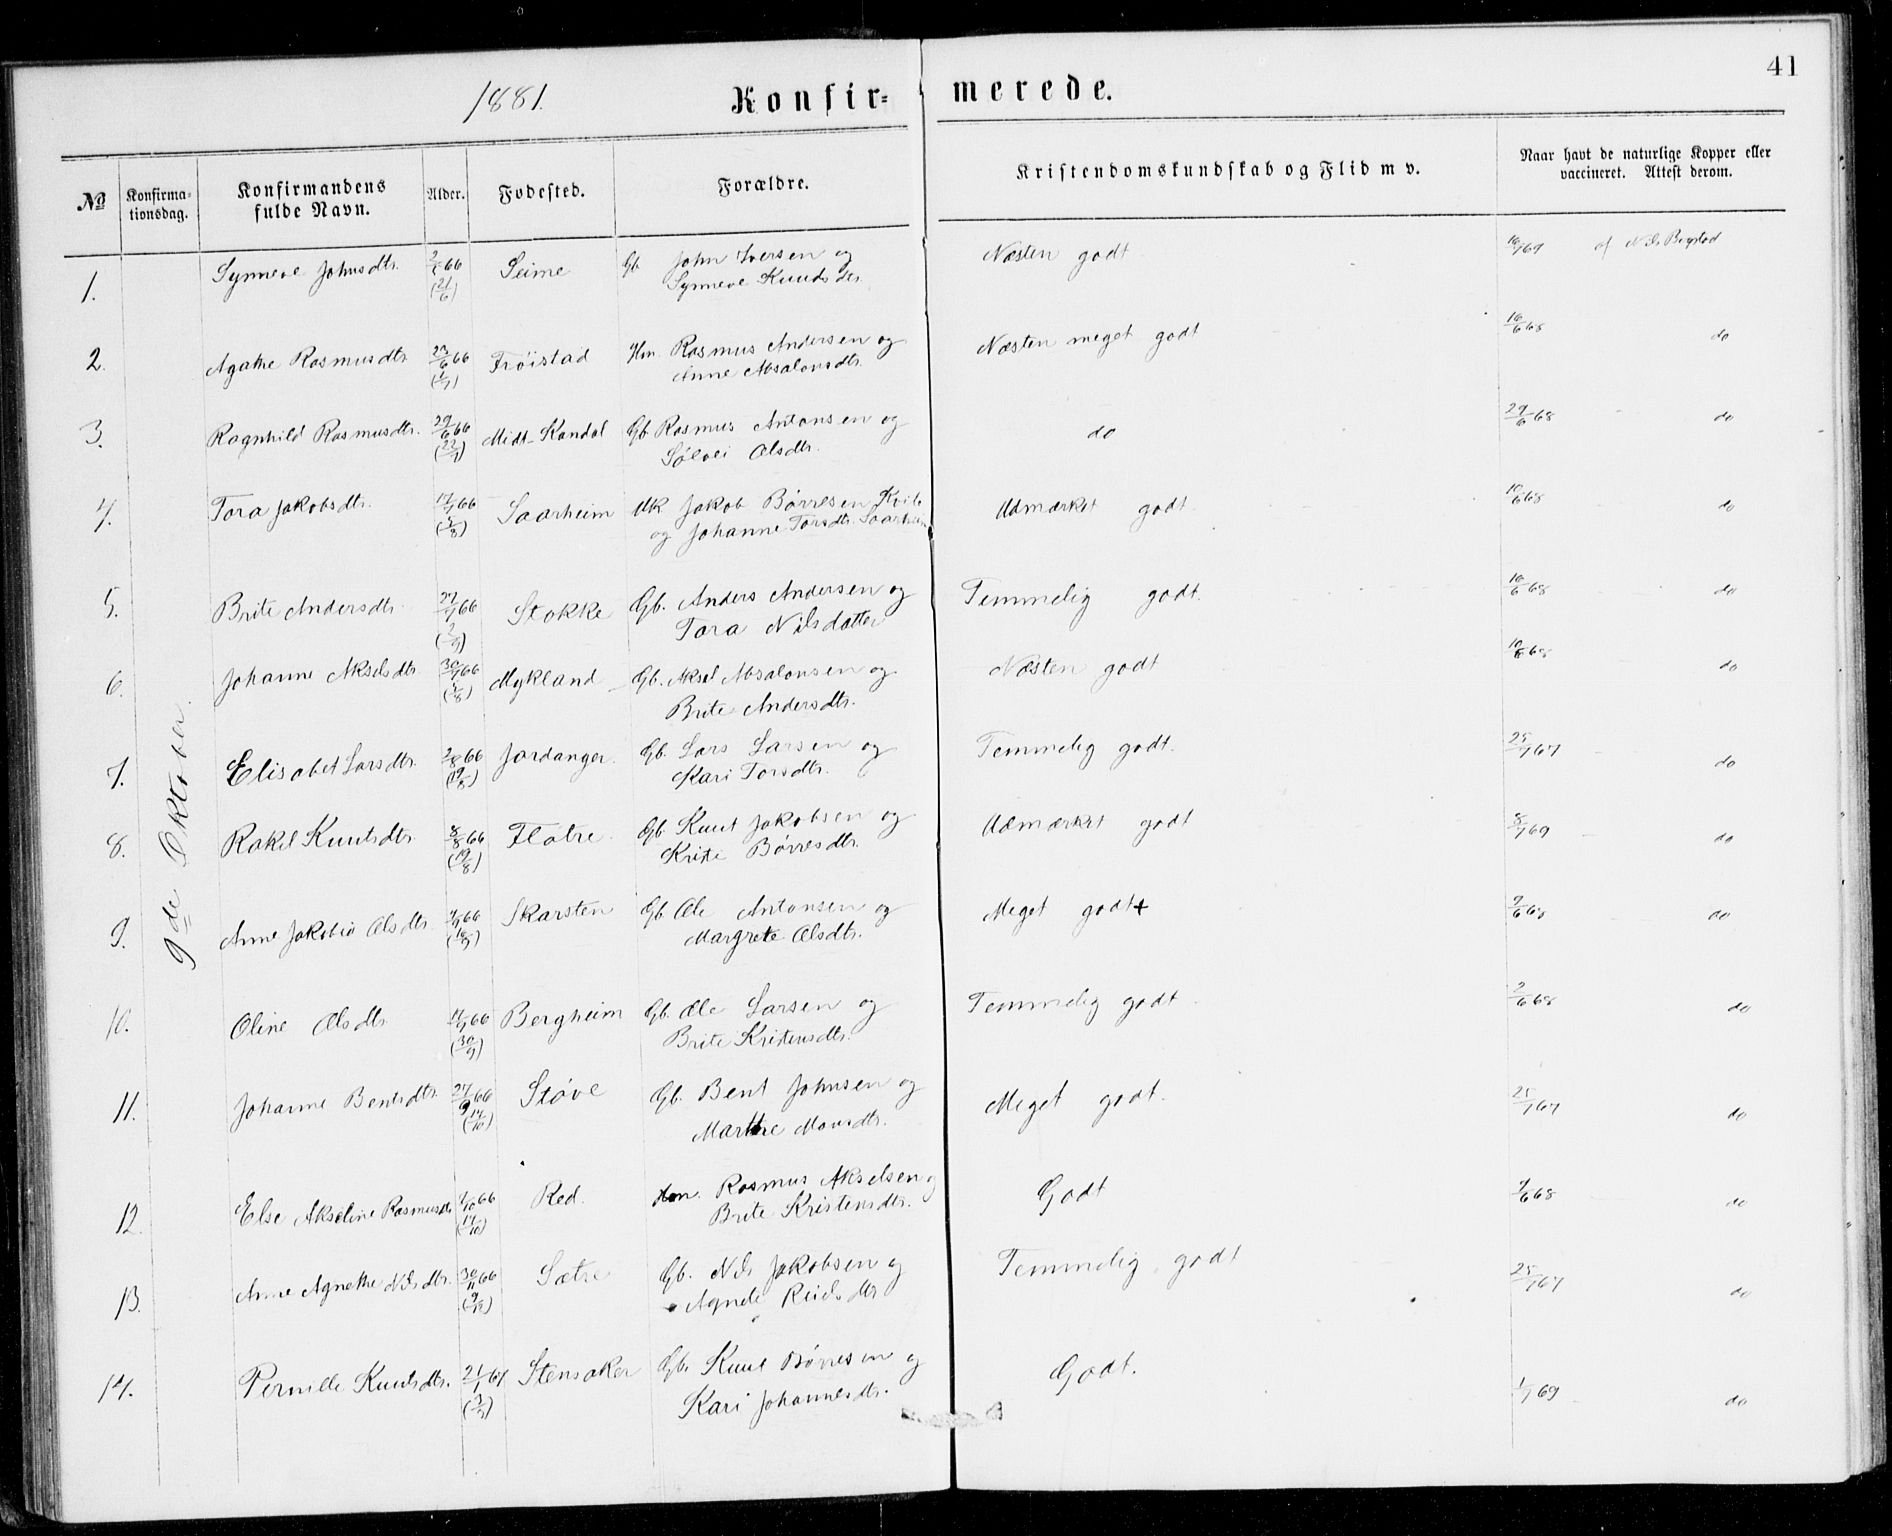 41
1881. Konfir= merede.
№ Konfirma-tionsdag. Konfirmandens fulde Navn. Alder. Fødested. Forældre. Kristendomskundskab og Flid m v. Naar havt de naturlige Kopper eller vaccineret. Attest derom.
9de Oktober.
1. Synneve Johnsdtr. Seime Gb John Iversen og Næsten godt af Nils Bogstad
(21/6) Synneve Knudsdtr.
2. Agathe Rasmusdtr. 23/6 66 Frøistad Hm. Rasmus Andersen og Næsten meget godt do
Anne Absalonsdtr.
3. Ragnhild Rasmusdtr. 29/6 66 Midt-Kandal Gb Rasmus Antonsen og do 29/6 68 do
(22/7) Sølvei Olsdtr.
4. Tora Jakobsdtr. 17/7 66 Saarheim Uk Jakob Børresen Kvile Udmærket godt. 10/6 68 do
(5/8) og Johanne Torsdtr. Saarheim
5. Brite Andersdtr. 27/7 66 Stokke Gb. Anders Andersen og Temmelig godt. 10/6 68 do
Tora Nilsdatter
6. Johanne Akselsdtr 30/7 66 Mykland Gb. Aksel Absalonsen og Næsten godt 10/6 68 do
(5/8) Brite Andersdtr.
7. Elisabet Larsdtr. 2/8 66 Jordanger. Gb. Lars Larsen og Temmelig godt. 25/7 67 do
Kari Torsdtr.
8. Rakel Knutsdtr. 8/8 66 Flatre. Gb Knut Jakobsen og Udmærket godt 8/7 69 do
(19/8) Kristi Børresdtr.
9. Anne Jakobia Olsdtr. Skarsten Gb Ole Antonsen og Meget godt+ do
(16/9) Margrete Olsdtr.
10. Oline Olsdtr. 17/9 66 Bergheim Gb. Ole Larsen og Temmelig godt. 2/6 68 do
(30/9) Brite Kristensdtr.
11. Johanne Bentsdtr. 27/9 66 Støve Gb. Bent Johnsen og Meget godt. 25/7 67 do
(14/10) Marthe Monsdtr.
12. Else Akseline Rasmusdtr 7/10 66 Red. Hm. Rasmus Akselsen og Godt 9/6 68 do
(14/10) Brite Kristensdtr.
13. Anne Agnethe Nilsdtr. 30/11 66 Sætre Gb. Nils Jakobsen og Temmelig godt 25/7 67 do
(9/12) Agnete
14. Pernille Knutsdtr. 21/1 67 Stensaker Gb. Knut Børresen og Godt. 1/7 69 do
Kari Johannesdtr.